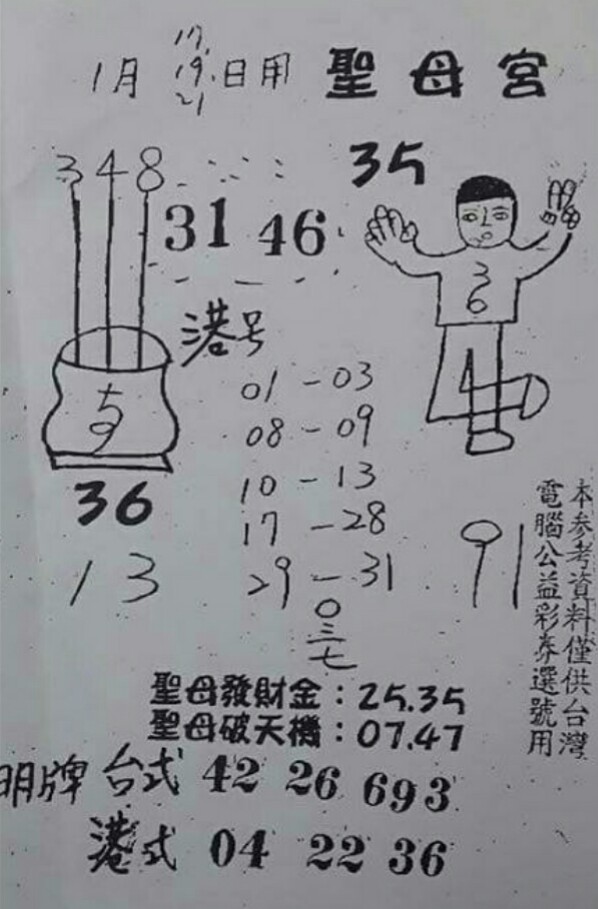 1月 17.19.21 日用 聖母宮
3 4 8
35
31 46
36
港号
01-03
08-09
10-13
17-28
29-31
〇三七
36
13
91
本參考資料僅供台灣
電腦公益彩券選號用
聖母發財金：25.35
聖母破天機：07.47
明牌 台式 42 26 693
港式 04 22 36